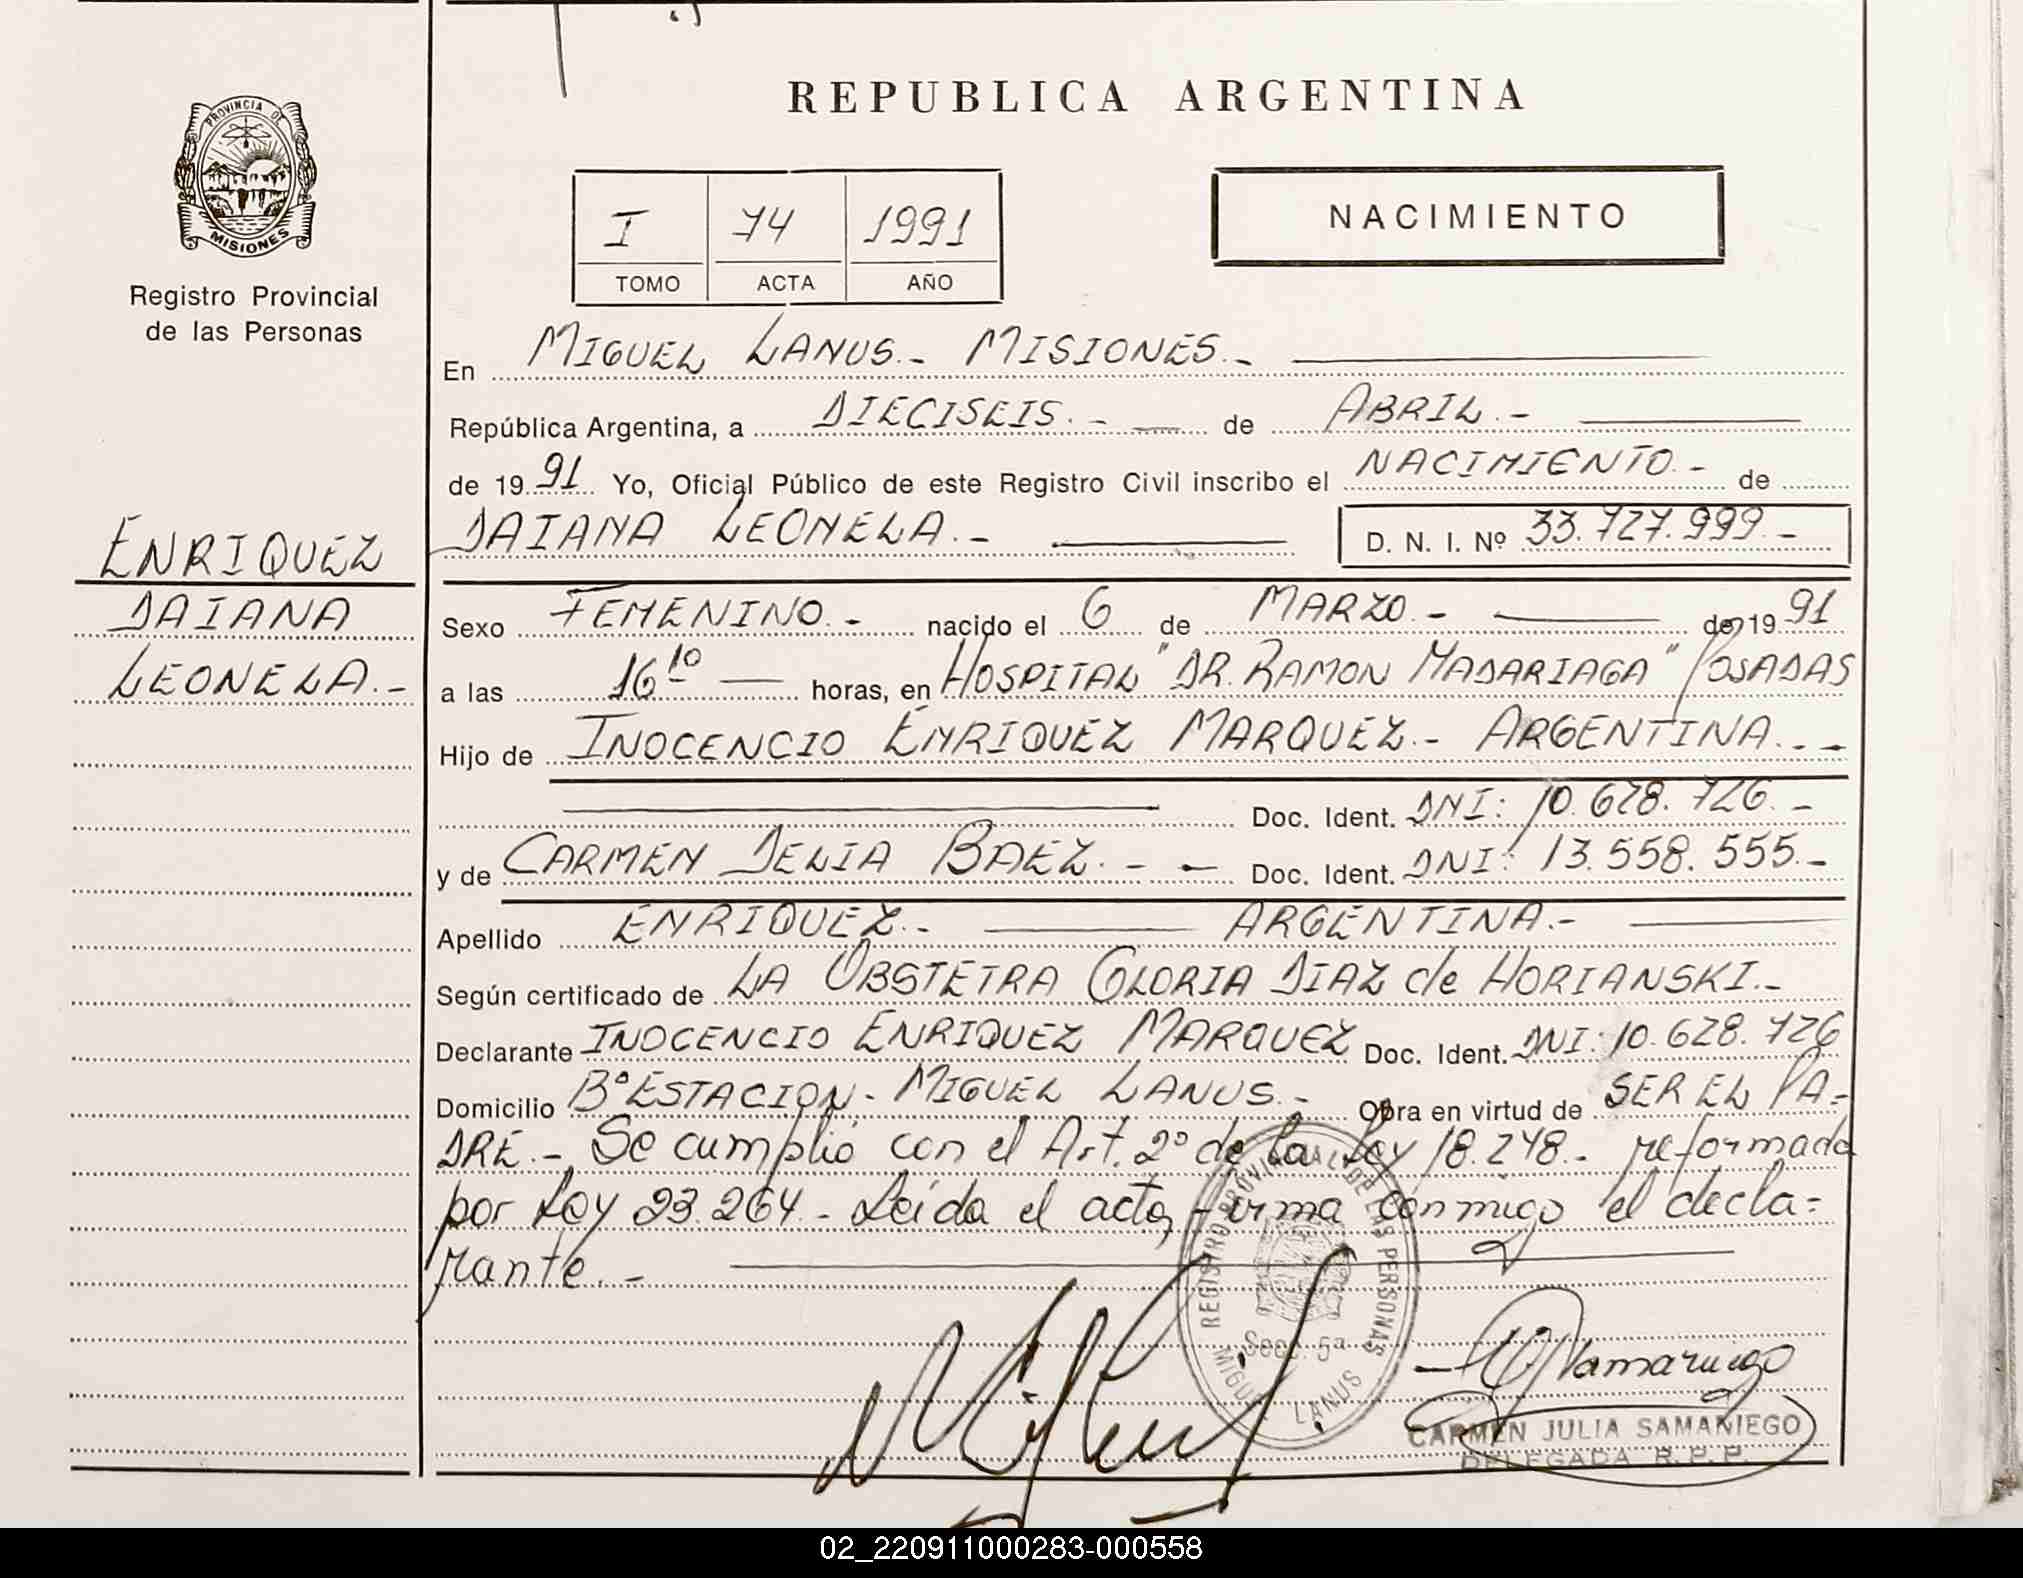 REPUBLICA ARGENTINA
PROVINCIA DE
MISIONES
Registro Provincial
de las Personas
I 74 1991
TOMO ACTA AÑO
NACIMIENTO
En MIGUEL LANUS.- MISIONES.-
República Argentina, a DIECISEIS.- de ABRIL.-
de 1991 Yo, Oficial Público de este Registro Civil inscribo el NACIMIENTO.- de
DAIANA LEONELA.- D. N. I. Nº 33.727.999.-
ENRIQUEZ
DAIANA
LEONELA.-
Sexo FEMENINO.- nacido el 6 de MARZO.- de 1991
a las 16 10 horas, en HOSPITAL "DR. RAMON MADARIAGA" POSADAS
Hijo de INOCENCIO ENRIQUEZ MARQUEZ.- ARGENTINA.-
Doc. Ident. DNI: 10.628.726.-
y de CARMEN DELIA BAEZ.- Doc. Ident. DNI: 13.558.555.-
Apellido ENRIQUEZ.- ARGENTINA.-
Según certificado de LA OBSTETRA GLORIA DIAZ de HORIANSKI.-
Declarante INOCENCIO ENRIQUEZ MARQUEZ Doc. Ident. DNI: 10.628.726
Domicilio Bº ESTACION - MIGUEL LANUS.- Obra en virtud de SER EL PA-
DRE.- Se cumplió con el Art. 2º de la Ley 18.248.- reformada
por Ley 23.264.- Leída el acta, firma conmigo el decla=
rante.-
REGISTRO PROVINCIAL DE LAS PERSONAS
Secc. 5ª
MIGUEL LANUS
CARMEN JULIA SAMANIEGO
DELEGADA R.P.P.
02_220911000283-000558